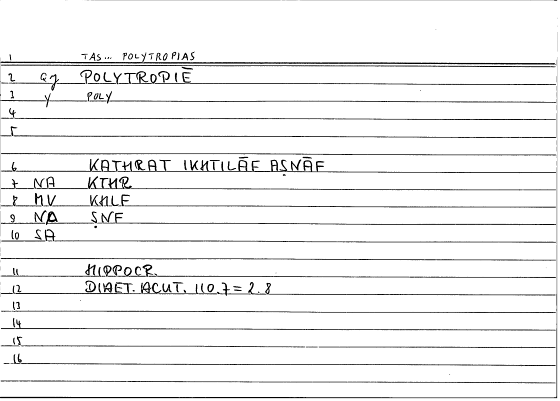 1 TAS... POLYTROPIAS
2 POLYTROPIĒ
3 Y POLY
4
5
6 KATHRAT IKHTILĀF AṢNĀF
7 NA KTHR
8 MV KHLF
9 NA ṢNF
10 SA
11 HIPPOCR.
12 DIAET. ACUT. 110.7 = 2.8
13
14
15
16